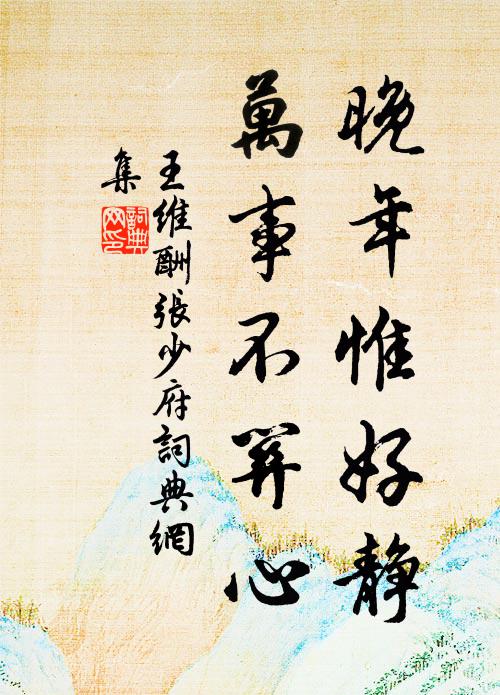 晚年惟好静
萬事不関心
王維酬張少府詞典網
集
詞典
网印